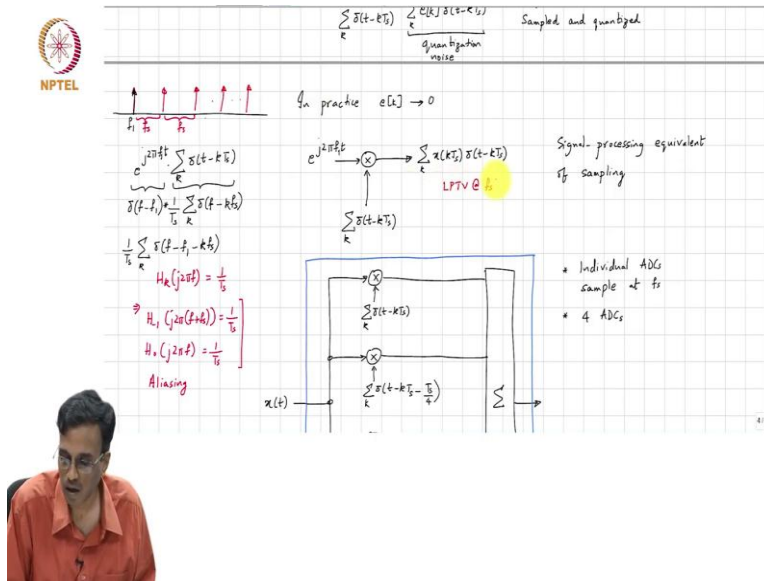 ∑ₖ δ(t-kTₛ) ∑ₖ e[k] δ(t-kTₛ) Sampled and quantized
quantization
noise
NPTEL
In practice e[k] → 0
f₁ fₛ fₛ
e^{j2πf₁t} · ∑ₖ δ(t-kTₛ)
δ(f-f₁) * 1/Tₛ ∑ₖ δ(f-kfₛ)
1/Tₛ ∑ₖ δ(f-f₁-kfₛ)
Hₖ(j2πf) = 1/Tₛ
⇒ H₋₁(j2π(f+fₛ)) = 1/Tₛ
H₀(j2πf) = 1/Tₛ
Aliasing
e^{j2πf₁t} → × → ∑ₖ x(kTₛ) δ(t-kTₛ)
LPTV @ fₛ
∑ₖ δ(t-kTₛ)
Signal-processing equivalent
of sampling
×
∑ₖ δ(t-kTₛ)
×
∑ₖ δ(t-kTₛ-Tₛ/4)
x(t)
∑
* Individual ADCs
sample at fₛ
* 4 ADCs